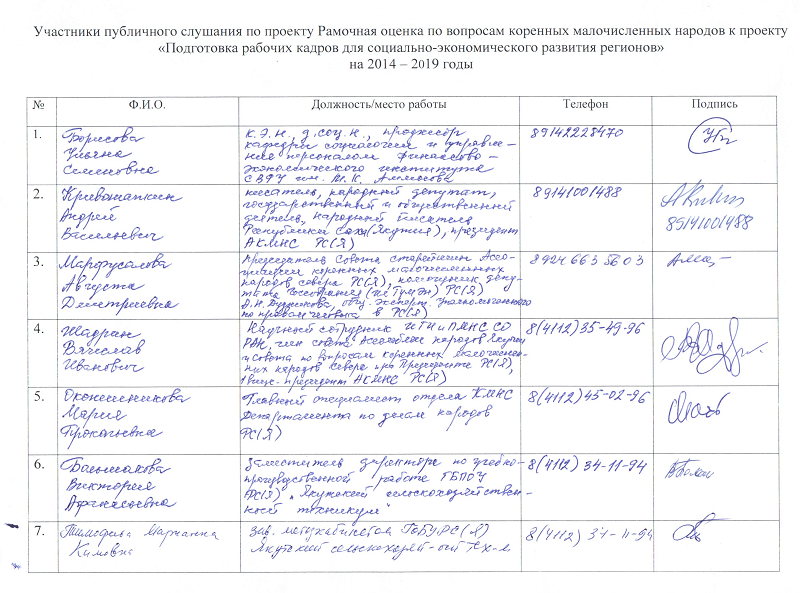 Участники публичного слушания по проекту Рамочная оценка по вопросам коренных малочисленных народов к проекту
«Подготовка рабочих кадров для социально-экономического развития регионов»
на 2014 – 2019 годы
№ Ф.И.О. Должность/место работы Телефон Подпись
1.
Борисова
Ульяна
Семеновна
к.э.н., д.соц.н., профессор
кафедры социологии и управле-
ния персоналом финансово-
экономического института
СВФУ им. М.К. Аммосова
89142228470
2.
Кривошапкин
Андрей
Васильевич
писатель, народный депутат,
государственный и общественный
деятель, народный писатель
Республики Саха (Якутия), президент
АКМНС РС(Я)
89141001488
89141001488
3.
Марфусалова
Августа
Дмитриевна
Председатель Совета старейшин Ассо-
циации коренных малочисленных
народов севера РС(Я), помощник депу-
тата РС(Я)
общ. эксперт
по правам человека в РС(Я)
8924 663 5603
4.
Шадрин
Вячеслав
Иванович
Научный сотрудник ИГИиПМНС СО
РАН, член совета Ассамблеи народов Якутии
и совета по вопросам коренных малочислен-
ных народов Севера при Президенте РС(Я),
вице-президент АКМНС РС(Я)
8(4112)35-49-96
5.
Оконешникова
Мария
Прокопьевна
Главный специалист отдела КМНС
Департамента по делам народов
РС(Я)
8(4112)45-02-96
6.
Большакова
Виктория
Афанасьевна
Заместитель директора по учебно-
производственной работе ГБПОУ
РС(Я) „Якутский сельскохозяйствен-
ный техникум"
8(4112) 34-11-94
7.
Тимофеева Марианна
Кимовна
Зав. метукабинетом ГоБУ РС(Я)
Якутский сельскохозяй-ный тех-м
8(4112) 34-11-94